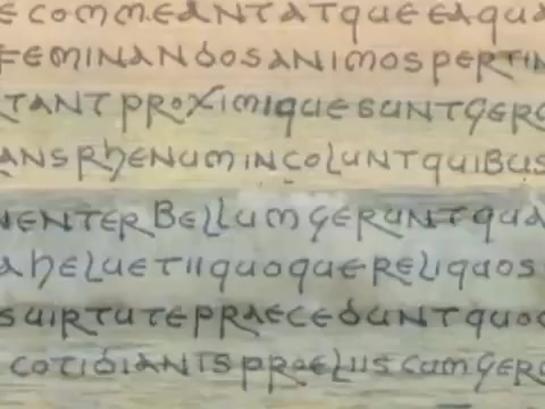 ECOMMEANTATQUEEAQUA
FEMINANDOSANIMOSPERTIN
RTANTPROXIMIQUESUNTGER
ANSRHENUMINCOLUNTQUIBUS
NENTERBELLUMGERUNTQUA
AHELUETIIQUOQUERELIQUOS
SUIRTUTEPRAECEDUNTQUO
COTIDIANISPROELIISCUMGER